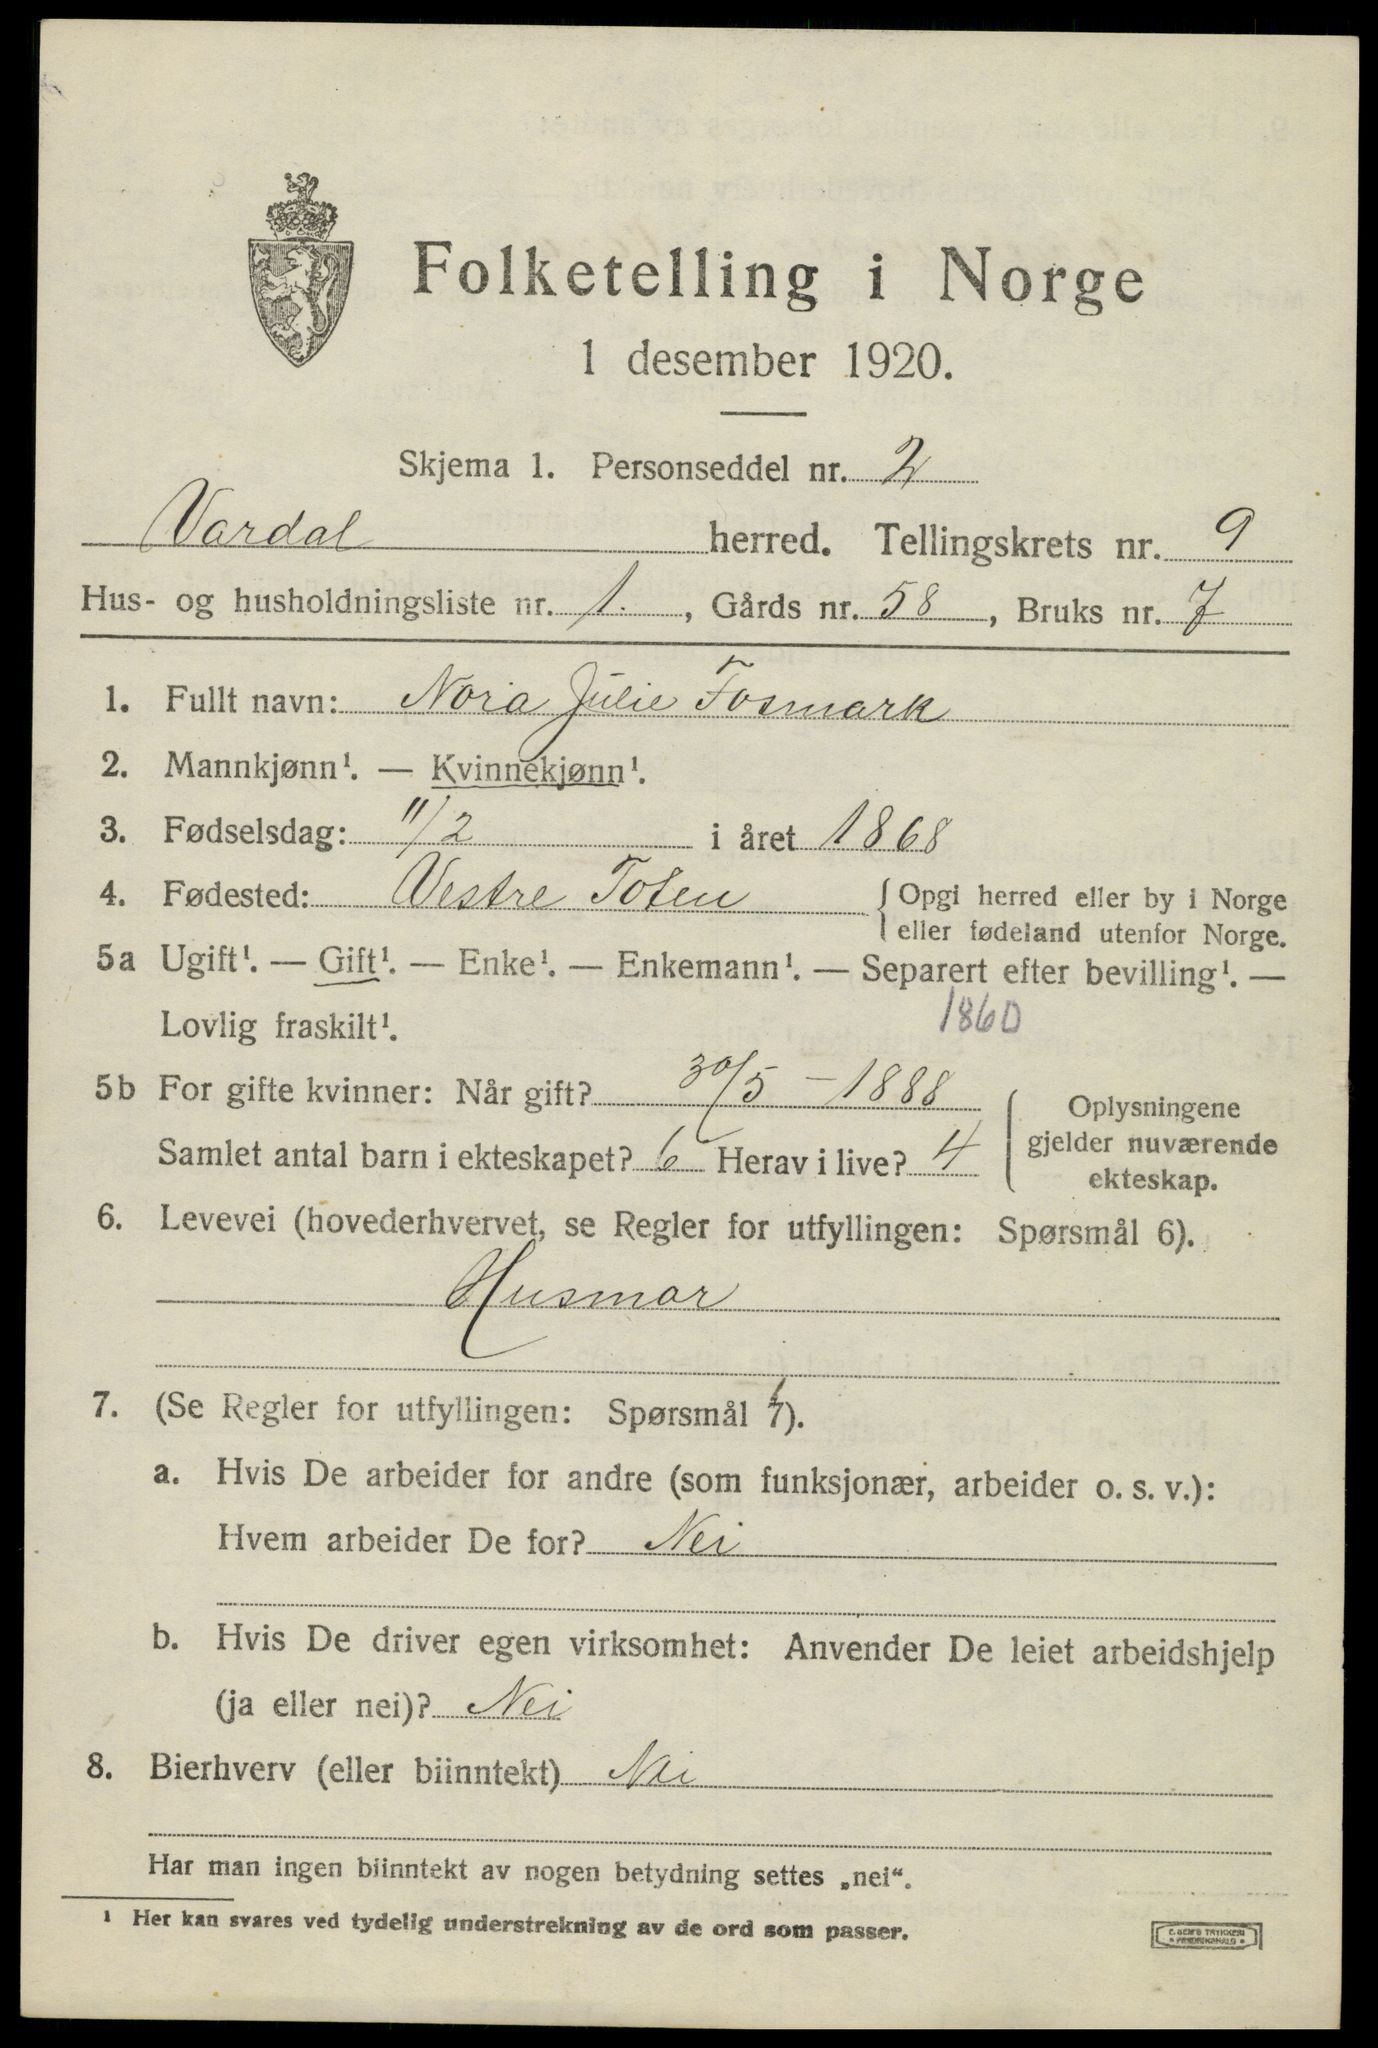 Folketelling i Norge
1 desember 1920.
Skjema 1. Personseddel nr. 2
Vardal herred. Tellingskrets nr. 9
Hus- og husholdningsliste nr. 1. , Gårds nr. 58 , Bruks nr. 7
1. Fullt navn: Nora Julie Fosmark
2. Mannkjønn¹. — Kvinnekjønn¹.
3. Fødselsdag: 11/2 i året 1868
4. Fødested: Vestre Toten { Opgi herred eller by i Norge
eller fødeland utenfor Norge.
5a Ugift¹. — Gift¹. — Enke¹. — Enkemann¹. — Separert efter bevilling¹. —
Lovlig fraskilt¹.
1860
5b For gifte kvinner: Når gift? 30/5 – 1888
Samlet antal barn i ekteskapet? 6 Herav i live? 4
Oplysningene
gjelder nuværende
ekteskap.
6. Levevei (hovederhvervet, se Regler for utfyllingen: Spørsmål 6).
Husmor
7. (Se Regler for utfyllingen: Spørsmål 7).
a. Hvis De arbeider for andre (som funksjonær, arbeider o. s. v.):
Hvem arbeider De for? Nei
b. Hvis De driver egen virksomhet: Anvender De leiet arbeidshjelp
(ja eller nei)? Nei
8. Bierhverv (eller biinntekt) Nei
Har man ingen biinntekt av nogen betydning settes „nei“.
¹ Her kan svares ved tydelig understrekning av de ord som passer.